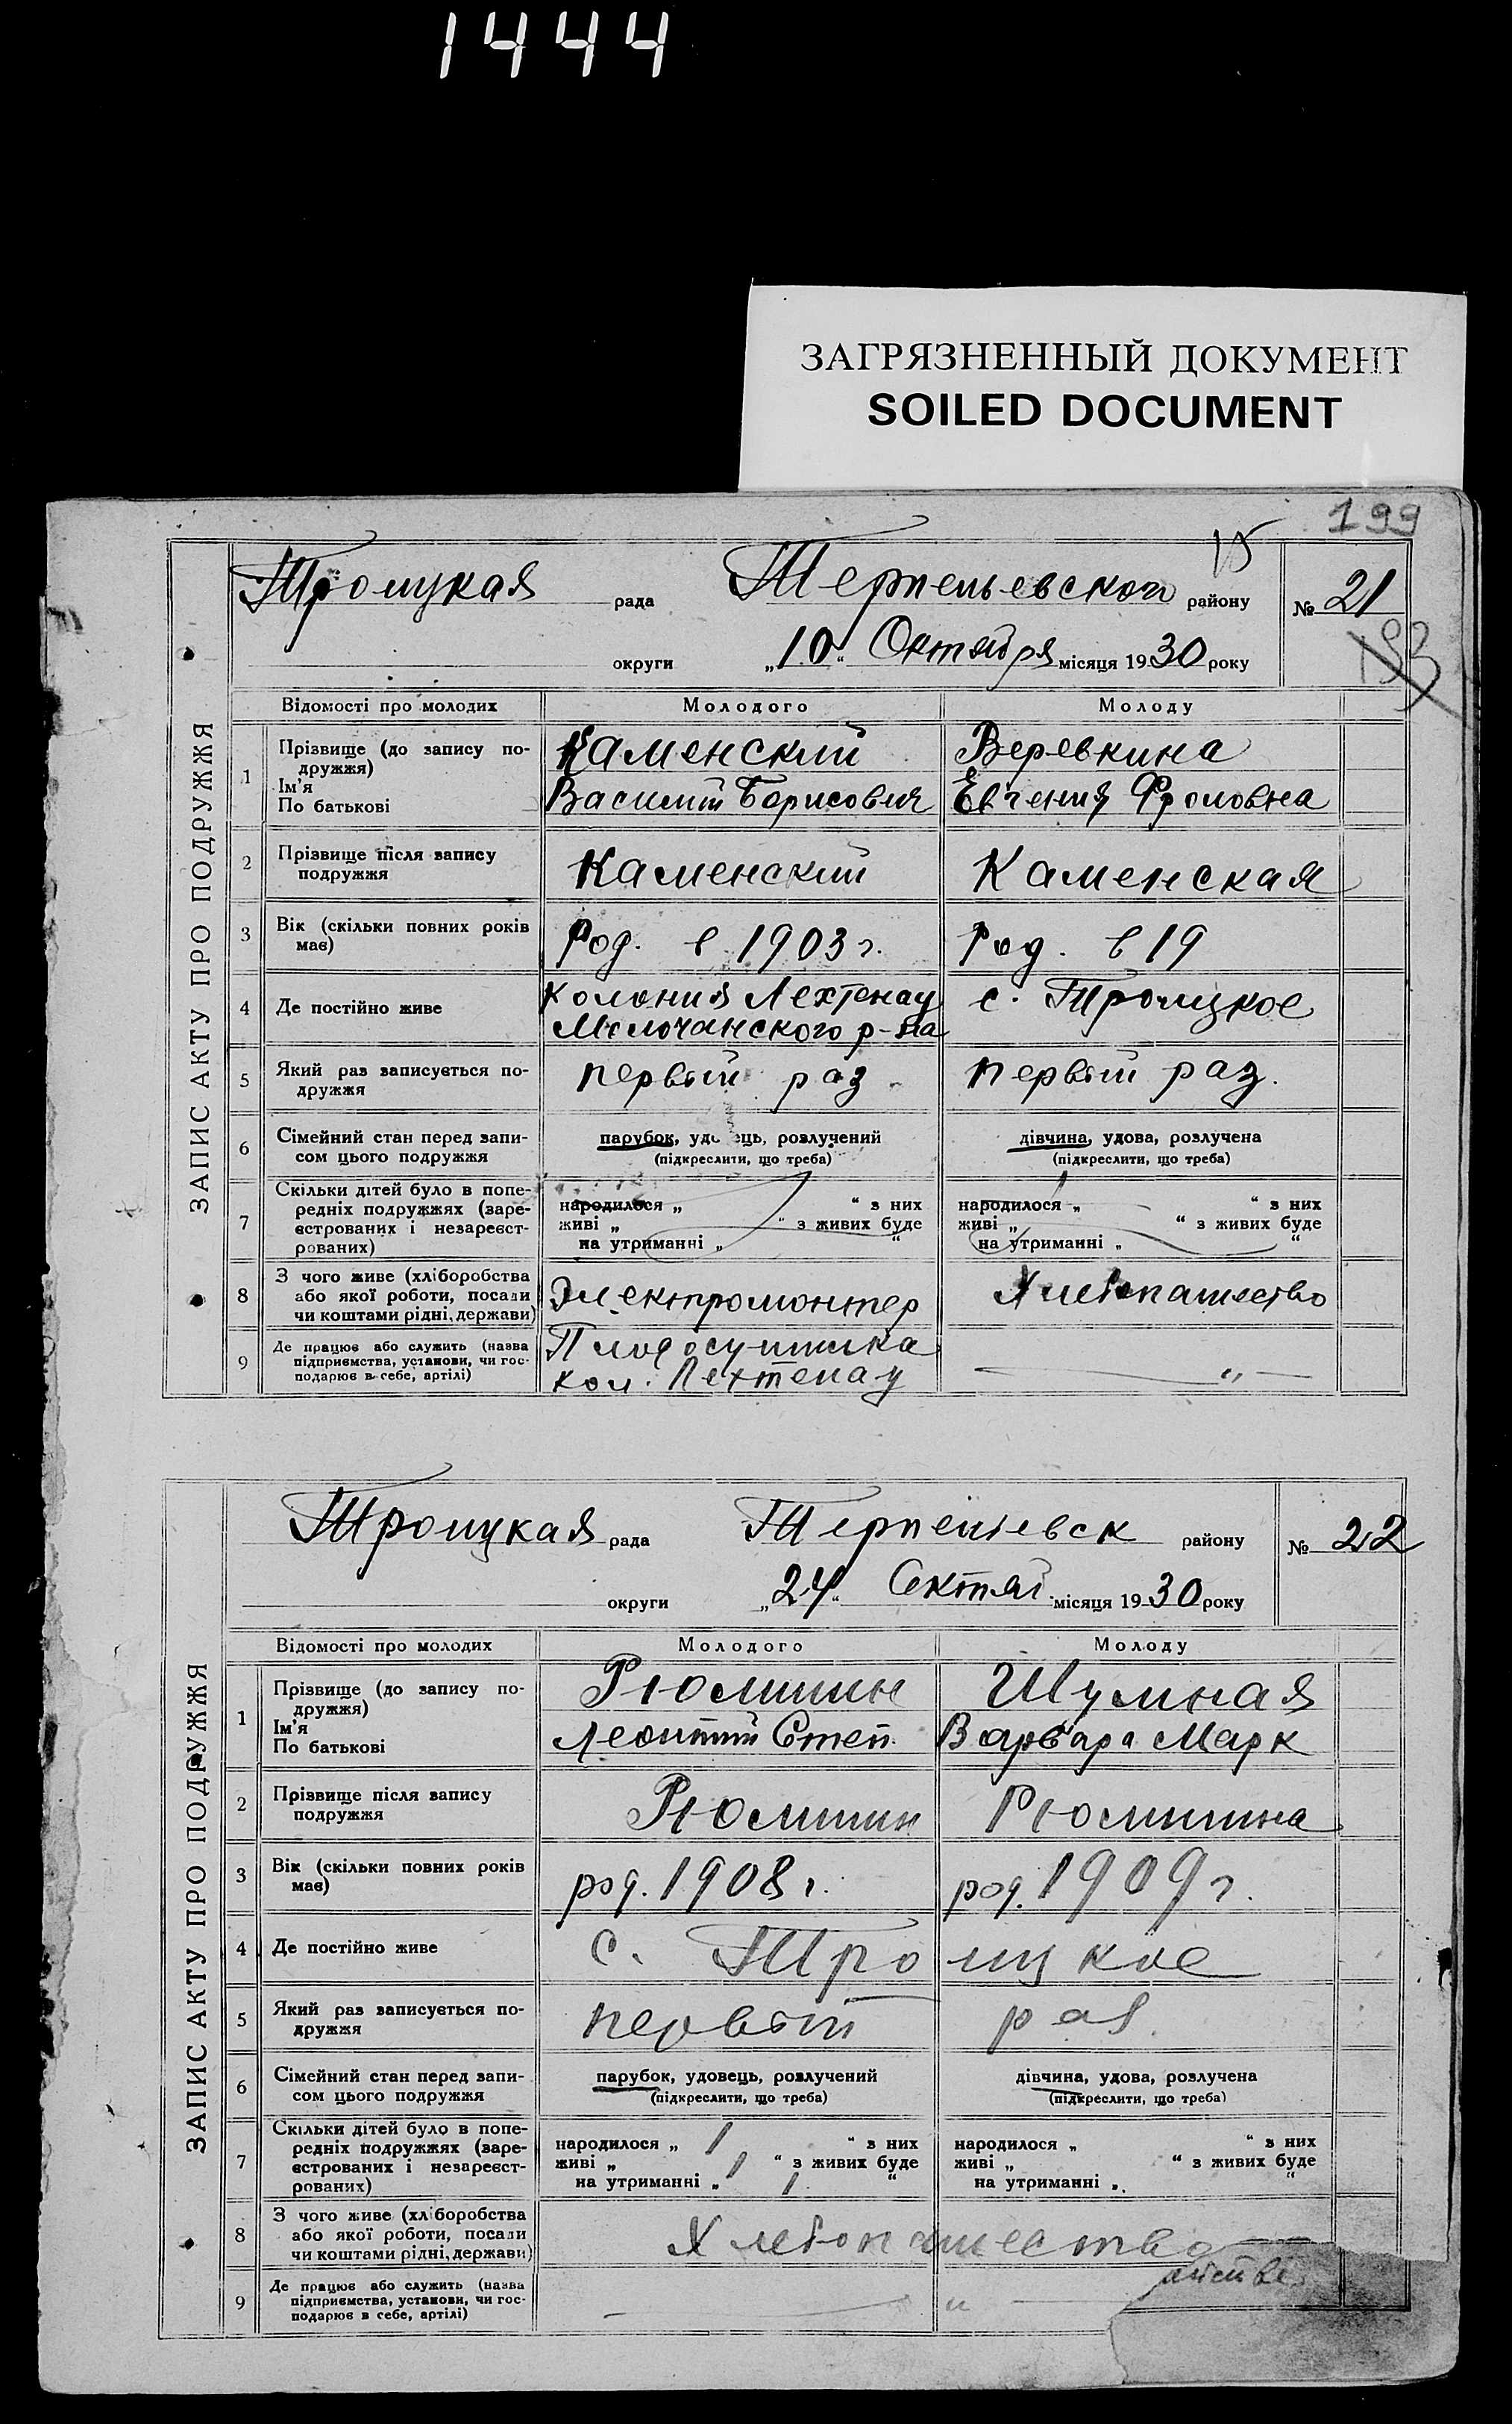 1444
ЗАГРЯЗНЕННЫЙ ДОКУМЕНТ
SOILED DOCUMENT
199
15
ЗАПИС АКТУ ПРО ПОДРУЖЖЯ
Троицкая рада Терпеньевского району № 21
193
округи „10“ Октября місяця 1930 року
Відомості про молодих Молодого Молоду
1 Прізвище (до запису по-
дружжя)
Ім'я
По батькові
Каменский Веревкина
Василий Борисович Евгения Фроловна
2 Прізвище після запису
подружжя
Каменский Каменская
3 Вік (скільки повних років
має)
Род. в 1903 г. Род. в 19
4 Де постійно живе
Колония Лехтенау с. Троицкое
Молочанского р-на
5 Який раз записується по-
дружжя
первый раз первый раз.
6 Сімейний стан перед запи-
сом цього подружжя
парубок, удовець, розлучений дівчина, удова, розлучена
(підкреслити, що треба) (підкреслити, що треба)
7 Скільки дітей було в попе-
редніх подружжях (заре-
єстрованих і незареєст-
рованих)
народилося „ “ з них народилося „ “ з них
живі „ “ з живих буде живі „ “ з живих буде
на утриманні „ “ на утриманні „ “
8 З чого живе (хліборобства
або якої роботи, посади
чи коштами рідні, держави)
Электромонтер Хлебопашество
9 Де працює або служить (назва
підприємства, установи, чи гос-
подарює в себе, артілі)
Плодосушилка — „ —
кол. Лехтенау
ЗАПИС АКТУ ПРО ПОДРУЖЖЯ
Троицкая рада Терпениевск району № 22
округи „24“ Октяб місяця 1930 року
Відомості про молодих Молодого Молоду
1 Прізвище (до запису по-
дружжя)
Ім'я
По батькові
Рюмшин Шумная
Леонтий Степ. Варвара Марк
2 Прізвище після запису
подружжя
Рюмшин Рюмшина
3 Вік (скільки повних років
має)
род. 1908 г. род. 1909 г.
4 Де постійно живе
с. Троицкое
5 Який раз записується по-
дружжя
первый раз
6 Сімейний стан перед запи-
сом цього подружжя
парубок, удовець, розлучений дівчина, удова, розлучена
(підкреслити, що треба) (підкреслити, що треба)
7 Скільки дітей було в попе-
редніх подружжях (заре-
єстрованих і незареєст-
рованих)
народилося „ 1 “ з них народилося „ “ з них
живі „ 1 “ з живих буде живі „ “ з живих буде
на утриманні „ 1 “ на утриманні „ “
8 З чого живе (хліборобства
або якої роботи, посади
чи коштами рідні, держави)
Хлебопашество
9 Де працює або служить (назва
підприємства, установи, чи гос-
подарює в себе, артілі)
— „ —